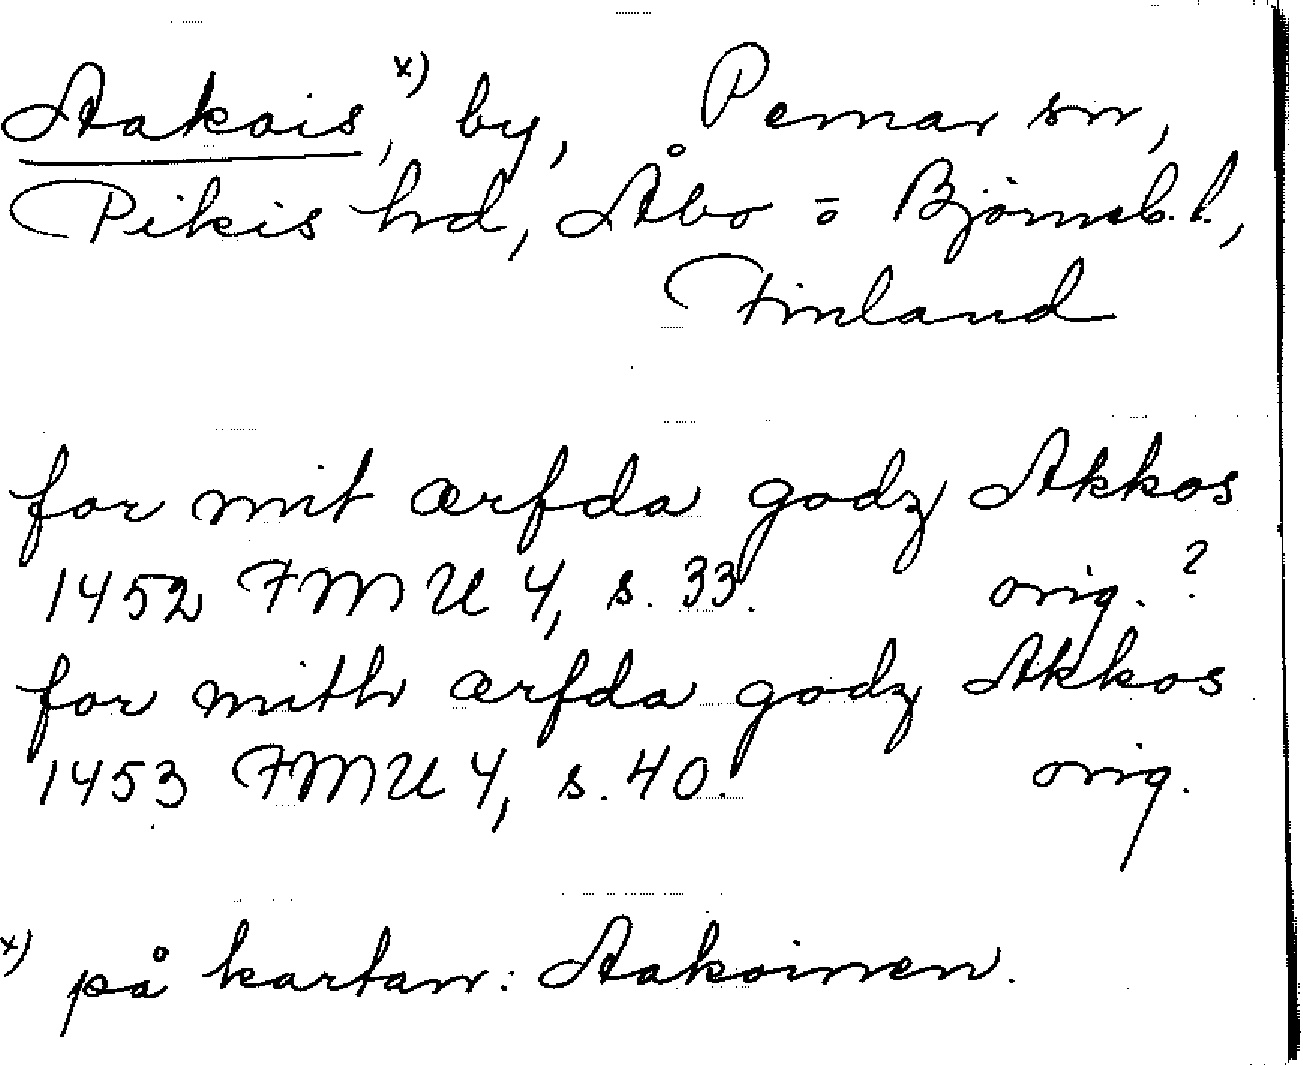 Aakois,x) by, Pemar sn,
Pikis hd, Åbo = Björneb. l.,
Finland
for mit ærfda godz Akkos
1452 FMU 4, s. 33. orig.?
for mith ærfda godz Akkos
1453 FMU 4, s. 40. orig.
x) på kartan: Aakoinen.